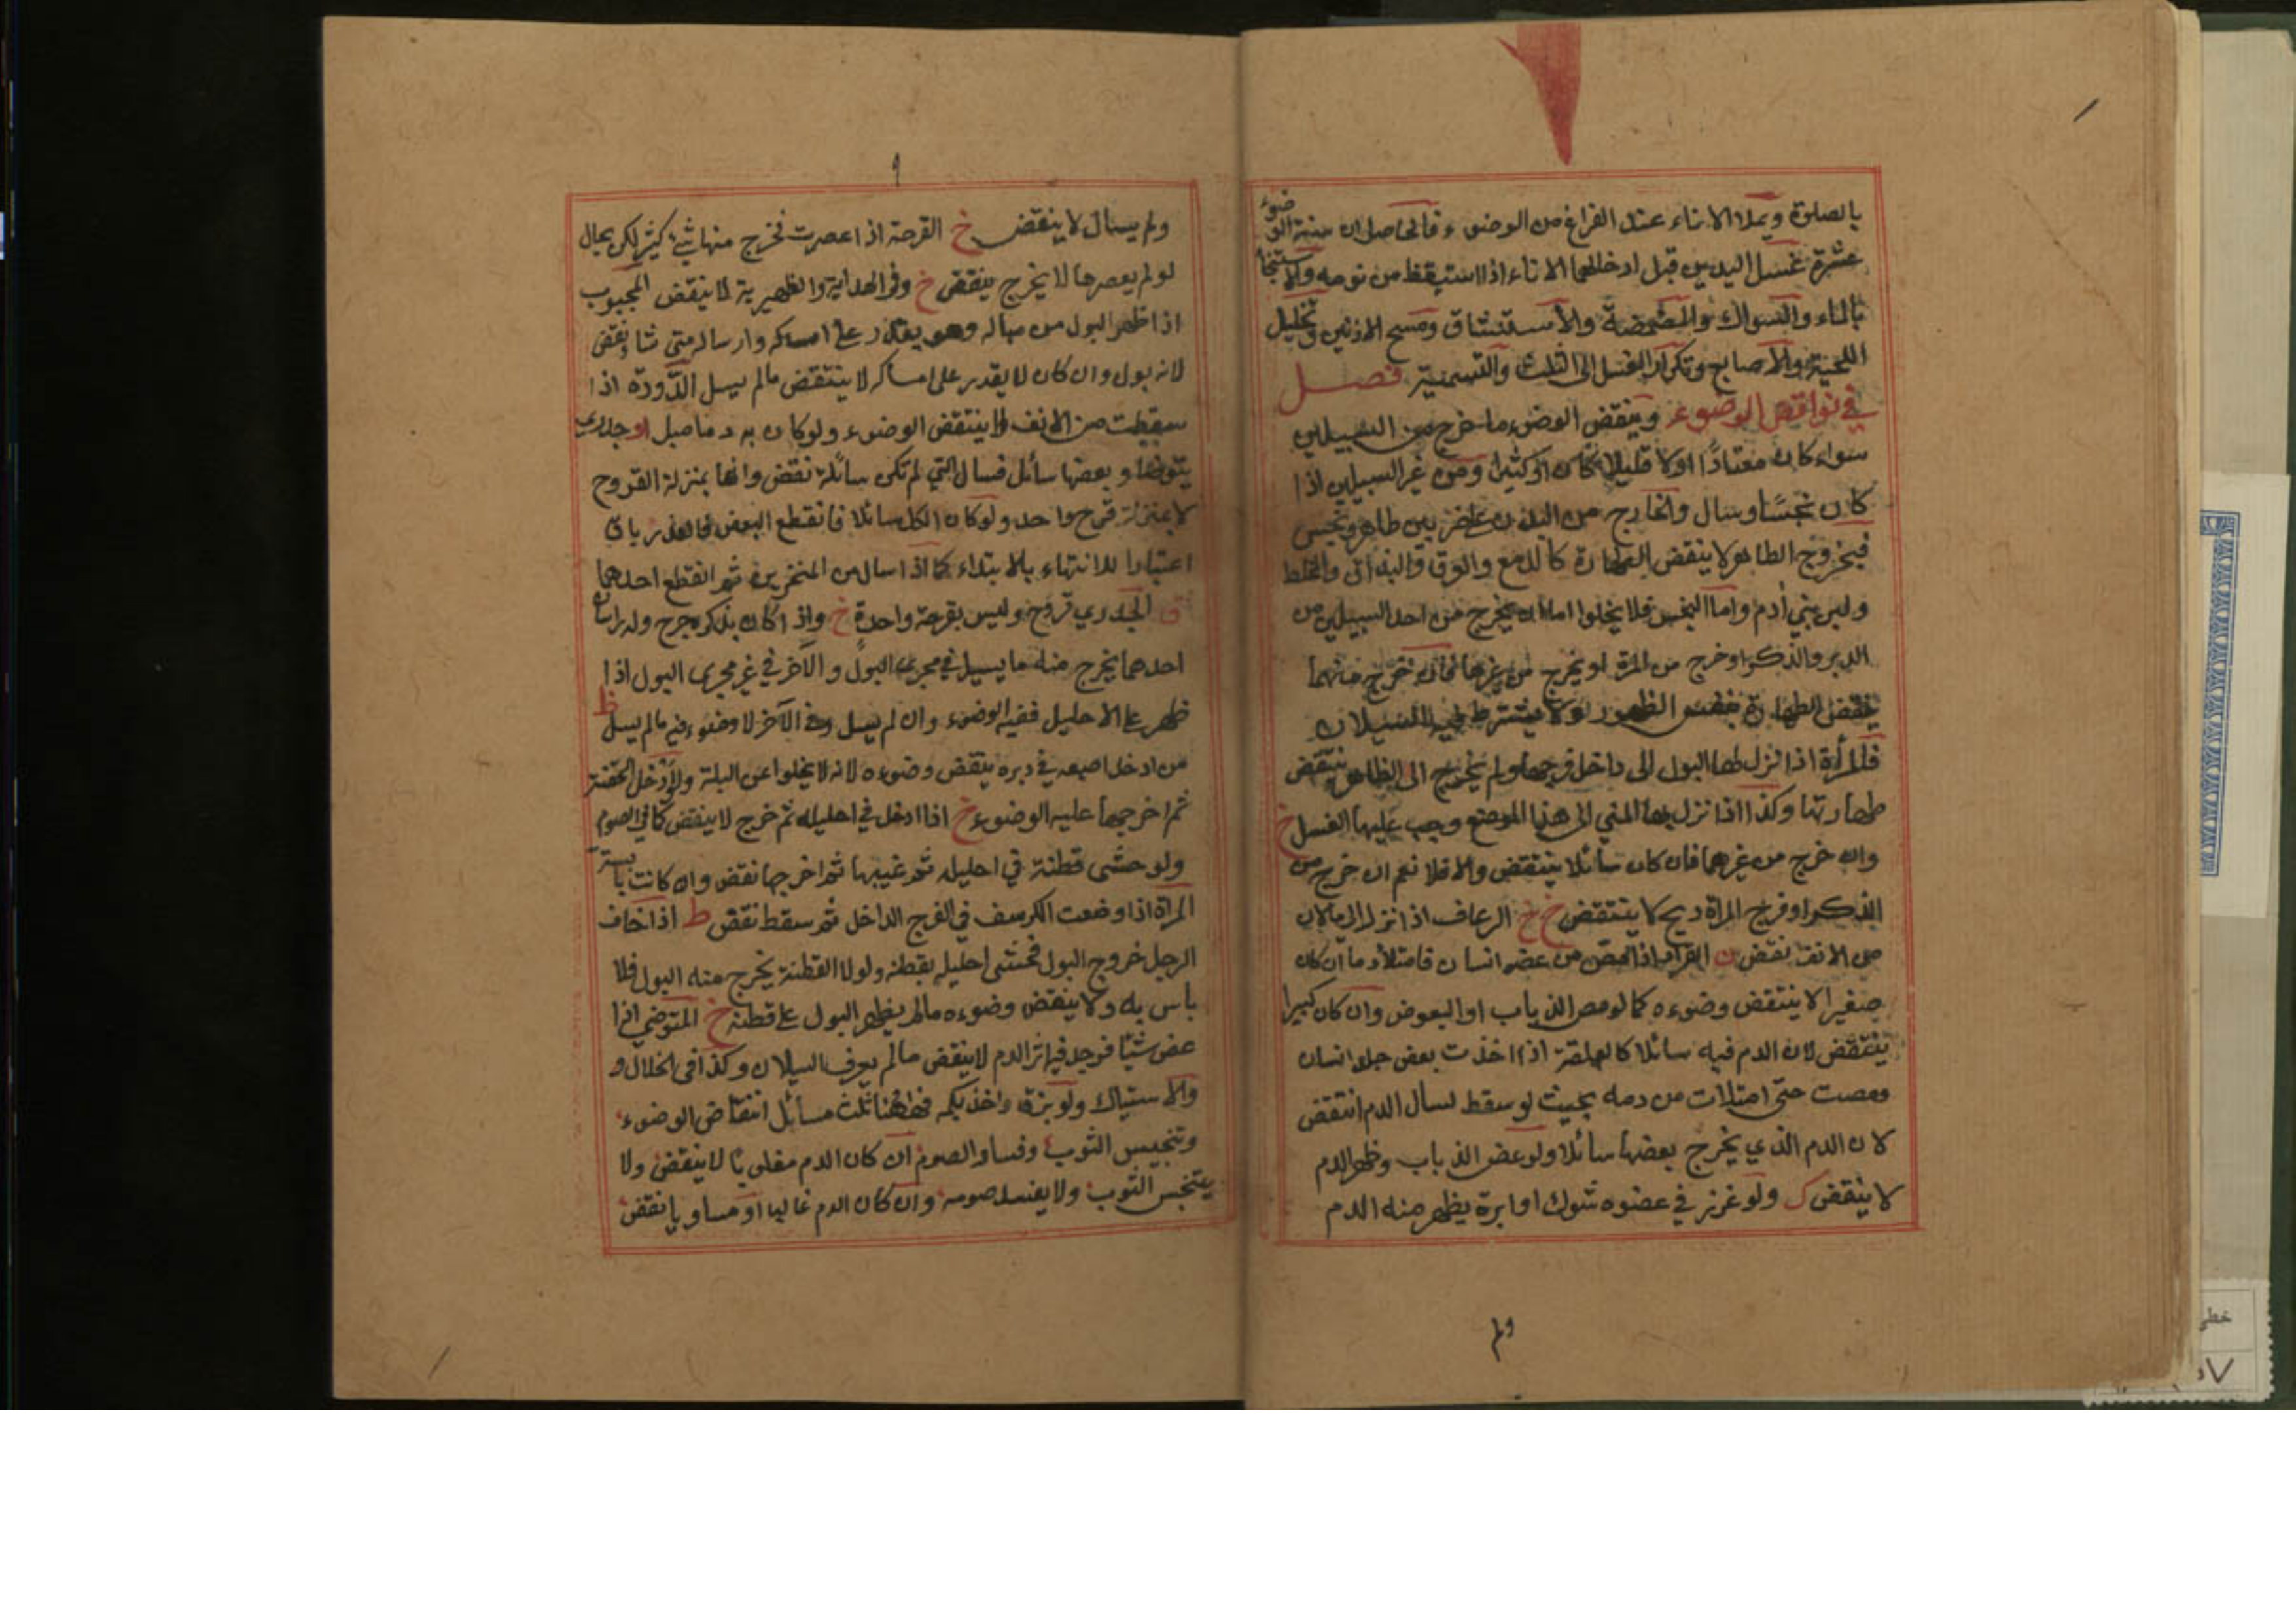 بالصلوة ويملاء الاناء عند الفراغ من الوضوء فالحاصل ان سنة الوضوء
عشرة غسل اليدين قبل ادخالهما الاناء اذا استيقظ من نومه والاستنجا
بالماء والسواك والمضمضة والاستنشاق ومسح الاذنين وتخليل
اللحية والاصابع وتكرار الغسل الى الثلث والتسمية فصل
في نواقض الوضوء وينقض الوضوء ما خرج من السبيلين
سواء كان معتادًا اولا قليلا كان او كثيرا ومن غير السبيلين اذا
كان نجسًا وسال والخارج من البدن على ضربين طاهر ونجس
فبخروج الطاهر لا ينقض الطهارة كالدمع والعرق والبزاق والمخاط
ولبن بني أدم واما النجس فلا يخلوا اما ان يخرج من احد السبيلين من
الدبر والذكر او خرج من المرة او يخرج من غيرها فان خرج منهما
ينقض الطهارة بنفس الظهور ولا يشترط فيه السيلان
فلمرأة اذا نزل لها البول الى داخل فرجها ولم يخرج الى الظاهر ينتقض
طهارتها وكذا اذا نزل بها المني الى هذا الموضع وجب عليها الغسل خ
وان خرج من غيرهما فان كان سائلا ينتقض والا فلا نعم ان خرج من
الذكر او فرج المراة ريح لا ينتقض خ خ الرعاف اذا نزل الى مالان
من الانف نقض ن القراد اذا مص من عضو انسان فامتلأ دما ان كان
صغيرا لا ينتقض وضوءه كما لو مص الذباب او البعوض وان كان كبيرا
ينتقض لان الدم فيه سائلا كالعلقة اذا اخذت بعض جلد انسان
ومصت حتى امتلات من دمه بحيث لو سقط لسال الدم انتقض
لان الدم الذي يخرج بعضها سائلا ولو عض الذباب وظهر الدم
لا ينقض ك ولو غرز في عضوه شوك او ابرة يظهر منه الدم
ولم
ولم يسال لا ينقض خ القرحة اذا عصرت فخرج منها شئ كثير لكن بحال
لو لم يعصرها لا يخرج ينقض خ وفي الهداية والظهيرية لا ينقض المجبوب
اذا ظهر البول من مباله وهو يقدر على امساكه وارساله متى شاء نقض
لانه بول وان كان لا يقدر على امساكه لا ينتقض مالم يسل الدّودة اذا
سقطت من الانف لا ينتقض الوضوء ولو كان به دماميل او جدري
يتوضا وبعضها سائل فسال التي لم تكن سائلة نقض وانها بمنزلة القروح
لا بمنزلة قرح واحد ولو كان الكل سائلا فانقطع البعض فالعذر باق
اعتبارا للانتهاء بالابتداء كما اذا سال من المنخرين ثم انقطع احدهما
ق الجدري قروح وليس بقرحة واحدة خ واذا كان بذكره جرح وله راسان
احدهما يخرج منه ما يسيل في مجرى البول و الآخر في غير مجرى البول اذا
ظهر على الاحليل ففيه الوضوء وان لم يسل وفي الآخر لا وضوء فيه مالم يسل ظ
من ادخل اصبعه في دبره ينقض وضوءه لانه لا يخلوا عن البلة ولو ادخل الحقنة
ثم اخرجها عليه الوضوء خ اذا ادخل في احليله ثم خرج لا ينقض كما في الصوم
ولو حشى قطنة في احليله ثم غيبها ثم اخرجها نقض وان كانت يابسة
المراة اذا وضعت الكرسف في الفرج الداخل ثم سقط نقض ط اذا خاف
الرجل خروج البول فحشى احليله بقطنة ولولا القطنة يخرج منه البول فلا
باس به ولا ينقض وضوءه مالم يظهر البول على قطنة خ المتوضي اذا
عض شيئا فوجد فيه اثر الدم لا ينقض مالم يعرف السيلان وكذا في الخلال و
والاستياك ولو بزق واخذ بكمه فههنا ثلث مسائل انتقاض الوضوء
وتنجيس الثوب وفساد الصوم ان كان الدم مغلوبا لا ينقض ولا
يتنجس الثوب ولا يفسد صومه وان كان الدم غالبا او مساويا نقض